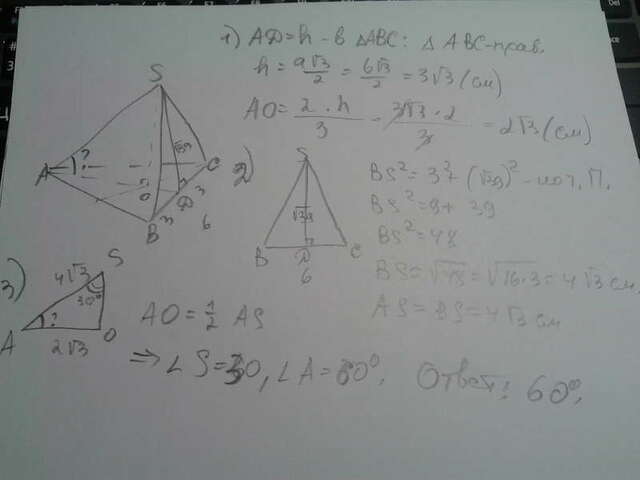 1) AD = h - в △ABC: △ABC-прав.
h = a√3/2 = 6√3/2 = 3√3 (см)
AO = 2·h/3 = 3√3·2/3 = 2√3 (см)
S
A
?
O
B
C
D
√39
3
3
6
2)
S
√39
B
D
C
6
BS² = 3² + (√39)² - по т. П.
BS² = 9 + 39
BS² = 48
BS = √48 = √16·3 = 4√3 см
AS = BS = 4√3 см
3)
S
4√3
30°
A
?
O
2√3
AO = 1/2 AS
⇒ ∠S = 30, ∠A = 60°. Ответ: 60°.